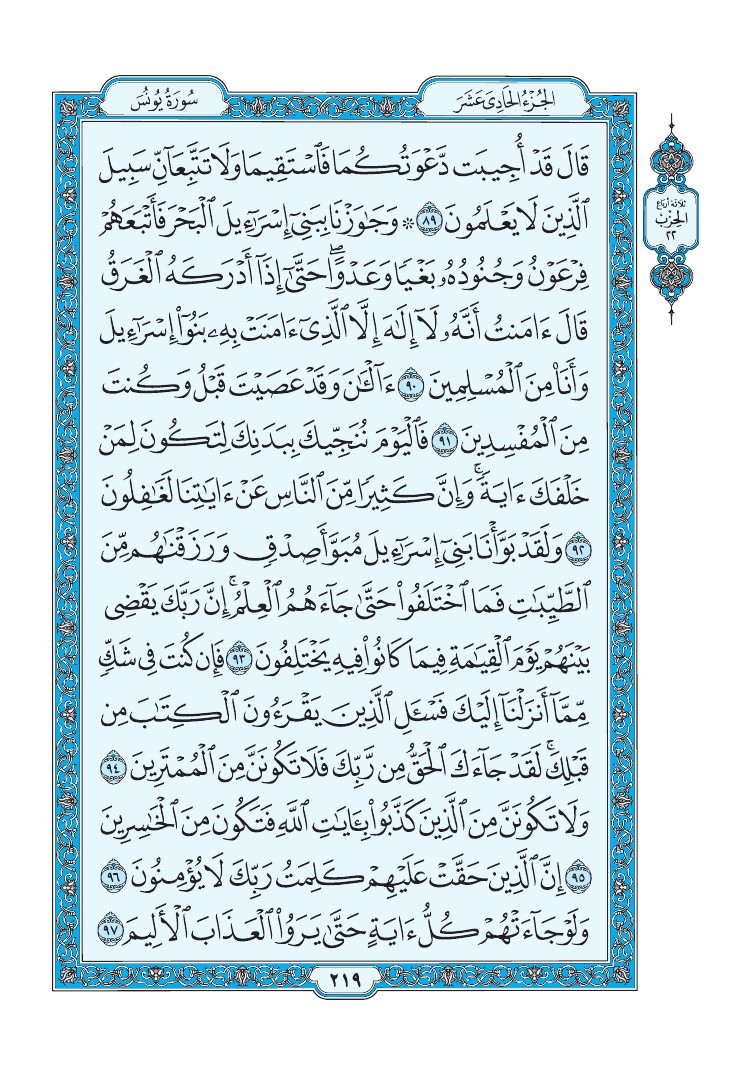 الجُزْءُ الحَادِي عَشَرَ
سُورَةُ يُونُسَ
قَالَ قَدۡ أُجِيبَت دَّعۡوَتُكُمَا فَٱسۡتَقِيمَا وَلَا تَتَّبِعَآنِّ سَبِيلَ
ٱلَّذِينَ لَا يَعۡلَمُونَ ٨٩ ۞ وَجَٰوَزۡنَا بِبَنِيٓ إِسۡرَٰٓءِيلَ ٱلۡبَحۡرَ فَأَتۡبَعَهُمۡ
فِرۡعَوۡنُ وَجُنُودُهُۥ بَغۡيٗا وَعَدۡوًاۖ حَتَّىٰٓ إِذَآ أَدۡرَكَهُ ٱلۡغَرَقُ
قَالَ ءَامَنتُ أَنَّهُۥ لَآ إِلَٰهَ إِلَّا ٱلَّذِيٓ ءَامَنَتۡ بِهِۦ بَنُوٓاْ إِسۡرَٰٓءِيلَ
وَأَنَا۠ مِنَ ٱلۡمُسۡلِمِينَ ٩٠ ءَآلۡـَٰٔنَ وَقَدۡ عَصَيۡتَ قَبۡلُ وَكُنتَ
مِنَ ٱلۡمُفۡسِدِينَ ٩١ فَٱلۡيَوۡمَ نُنَجِّيكَ بِبَدَنِكَ لِتَكُونَ لِمَنۡ
خَلۡفَكَ ءَايَةٗۚ وَإِنَّ كَثِيرٗا مِّنَ ٱلنَّاسِ عَنۡ ءَايَٰتِنَا لَغَٰفِلُونَ
٩٢ وَلَقَدۡ بَوَّأۡنَا بَنِيٓ إِسۡرَٰٓءِيلَ مُبَوَّأَ صِدۡقٖ وَرَزَقۡنَٰهُم مِّنَ
ٱلطَّيِّبَٰتِ فَمَا ٱخۡتَلَفُواْ حَتَّىٰ جَآءَهُمُ ٱلۡعِلۡمُۚ إِنَّ رَبَّكَ يَقۡضِي
بَيۡنَهُمۡ يَوۡمَ ٱلۡقِيَٰمَةِ فِيمَا كَانُواْ فِيهِ يَخۡتَلِفُونَ ٩٣ فَإِن كُنتَ فِي شَكّٖ
مِّمَّآ أَنزَلۡنَآ إِلَيۡكَ فَسۡـَٔلِ ٱلَّذِينَ يَقۡرَءُونَ ٱلۡكِتَٰبَ مِن
قَبۡلِكَۚ لَقَدۡ جَآءَكَ ٱلۡحَقُّ مِن رَّبِّكَ فَلَا تَكُونَنَّ مِنَ ٱلۡمُمۡتَرِينَ ٩٤
وَلَا تَكُونَنَّ مِنَ ٱلَّذِينَ كَذَّبُواْ بِـَٔايَٰتِ ٱللَّهِ فَتَكُونَ مِنَ ٱلۡخَٰسِرِينَ
٩٥ إِنَّ ٱلَّذِينَ حَقَّتۡ عَلَيۡهِمۡ كَلِمَتُ رَبِّكَ لَا يُؤۡمِنُونَ ٩٦
وَلَوۡ جَآءَتۡهُمۡ كُلُّ ءَايَةٍ حَتَّىٰ يَرَوُاْ ٱلۡعَذَابَ ٱلۡأَلِيمَ ٩٧
ثلاثة أرباع
الحِزْب
٢٢
٢١٩